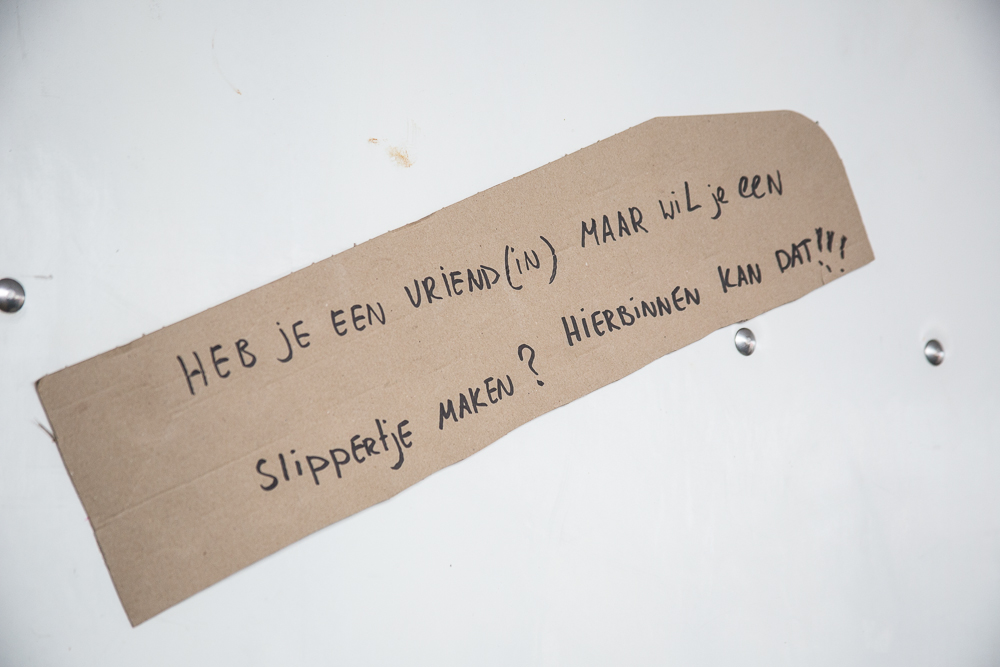 HEB JE EEN VRIEND(IN) MAAR WIL je eeN
SlippERtjE MAKEN? HiERBiNNEN KAN DAT!!!